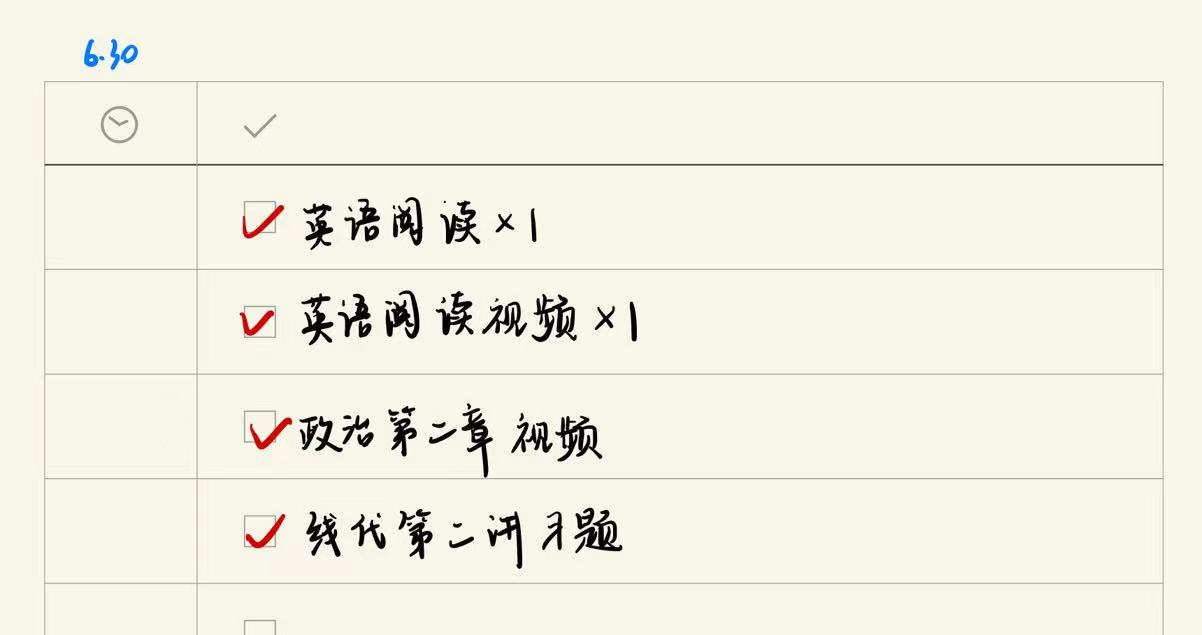 6.30
英语阅读×1
英语阅读视频×1
政治第二章视频
线代第二讲习题